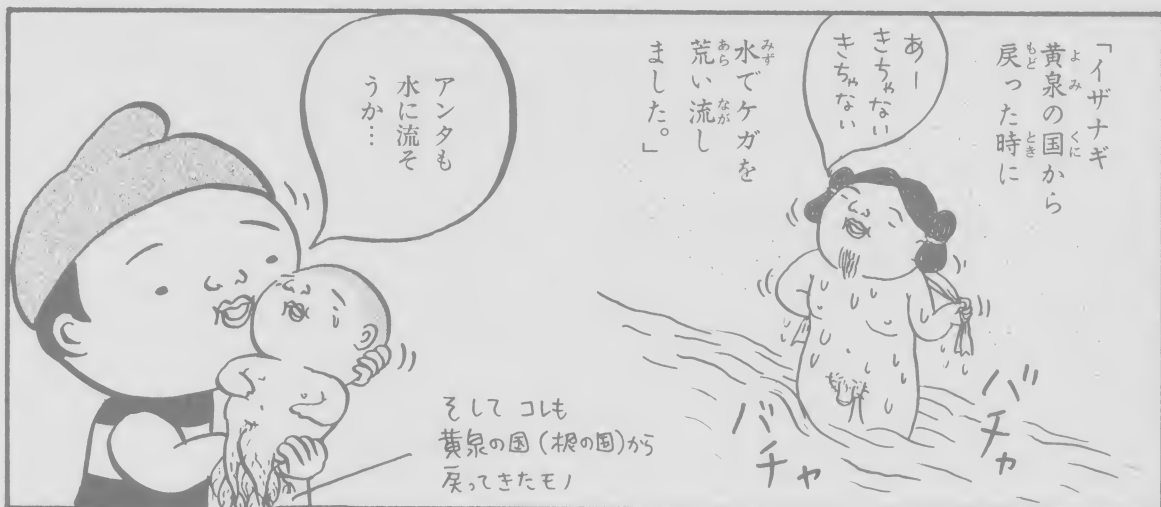 「イザナギ
黄泉の国から
戻った時に
あー
きちゃない
きちゃない
水でケガを
荒い流し
ました。」
バチャ
バチャ
アンタも
水に流そ
うか…
そして コレも
黄泉の国(根の国)から
戻ってきたモノ